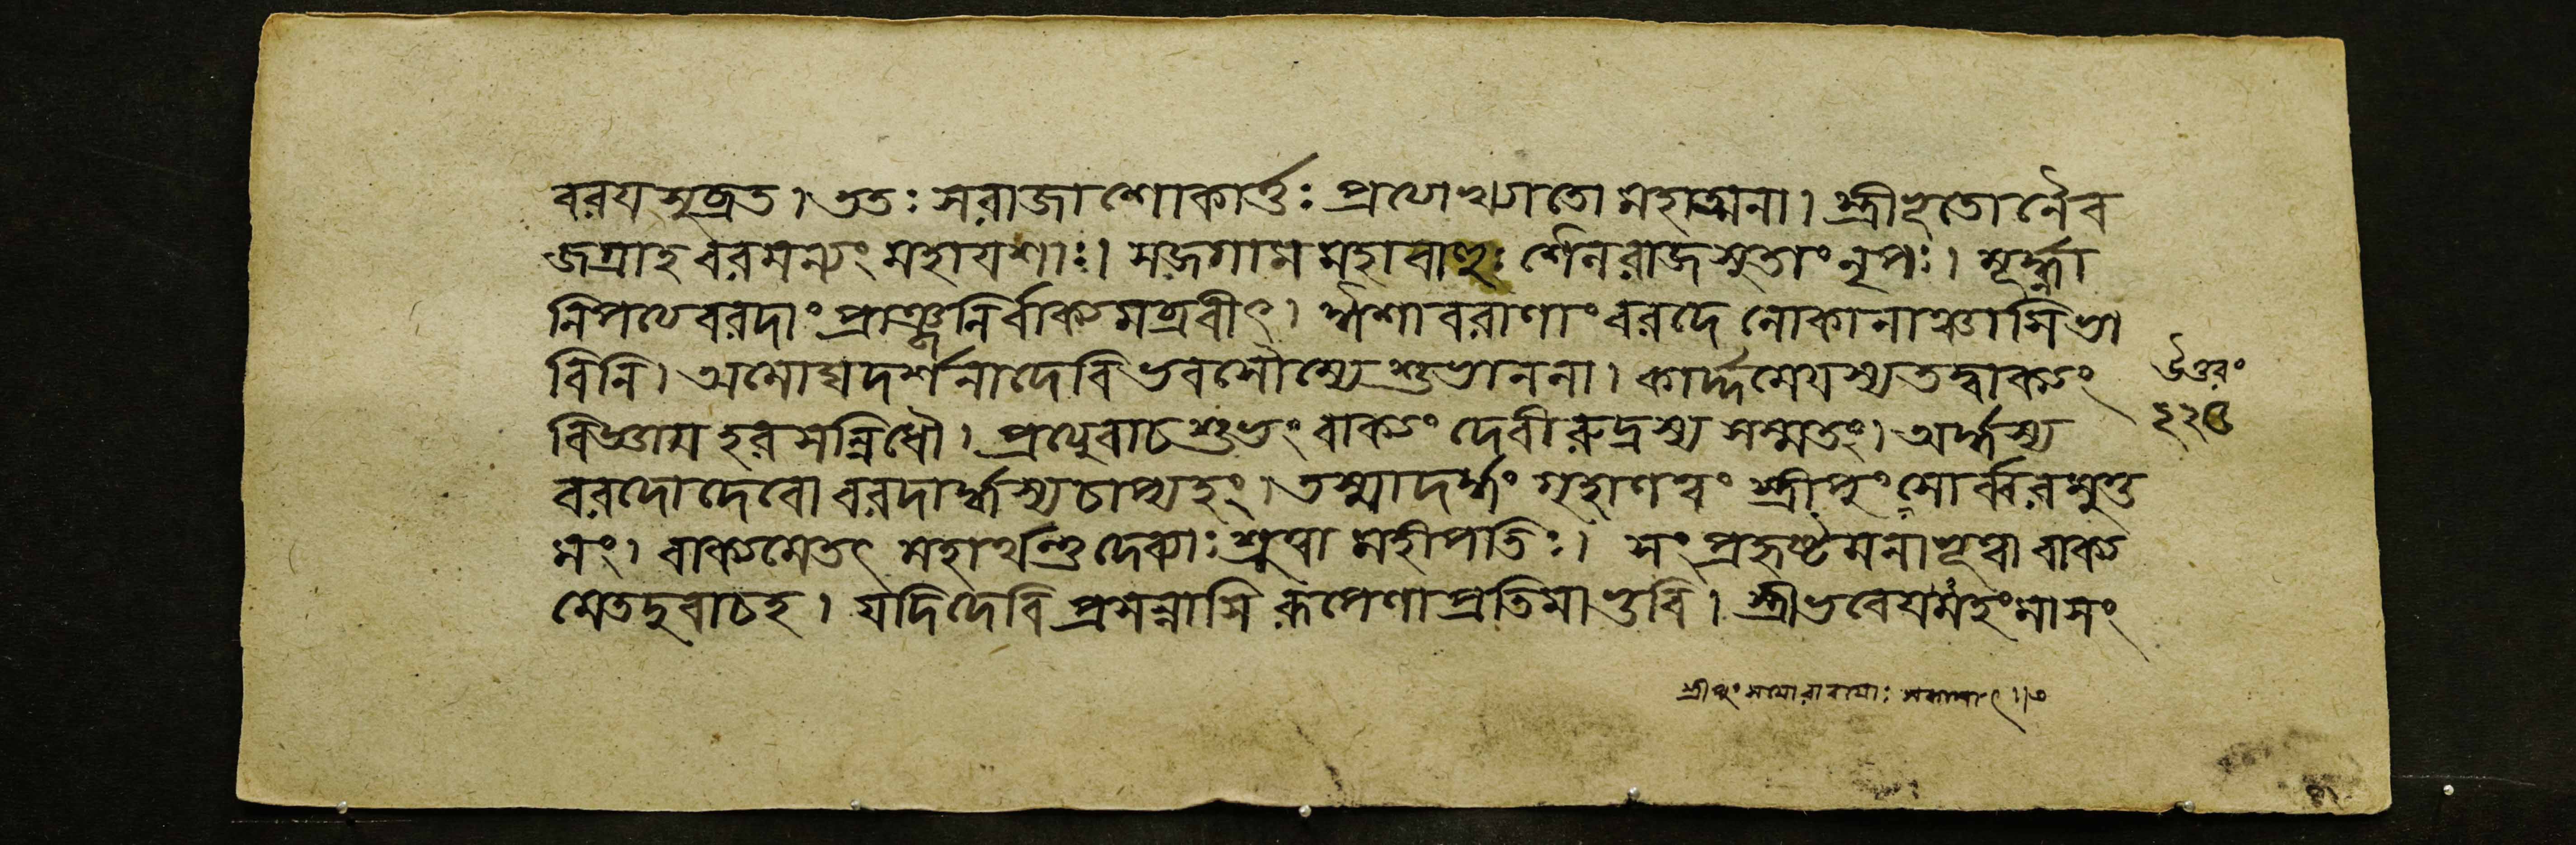 বরয সুব্রত। ততঃ স রাজা শোকার্ত্তঃ প্রত্যাখ্যাতো মহাত্মনা। স্ত্রীভূতো র্নৈব
জগ্রাহ বরমন্যং মহাযশাঃ। স জগাম মহাবাহুঃ শৈলরাজসুতাং নৃপঃ। মূর্দ্ধ্না
নিপত্য বরদাং প্রাঞ্জলির্বাক্যমব্রবীৎ। ঈশা বরাণাং বরদে লোকানাঞ্চাসি ভা
বিনি। অমোঘদর্শনা দেবি ভব সৌম্যে শুভাননা। কার্দ্দমেযস্য তদ্বাক্যং
উত্তরং
বিজ্ঞায হরসন্নিধৌ। প্রত্যুবাচ শুভং বাক্যং দেবী রুদ্রস্য সম্মতং। অর্দ্ধস্য
বরদো দেবো বরদার্দ্ধস্য চাপ্যহং। তস্মাদর্দ্ধং গৃহাণ ত্বং স্ত্রীপুংসোর্ব্বরমুত্ত
মং। বাক্যমেতৎ মহার্থন্তু দেব্যাঃ শ্রুত্বা মহীপতিঃ। সংপ্রহৃষ্টমনা ভূত্বা বাক্য
মেতদুবাচ হ। যদি দেবি প্রসন্নাসি রূপেণাপ্রতিমা ভুবি। স্ত্রী ভবেযমহং মাসং